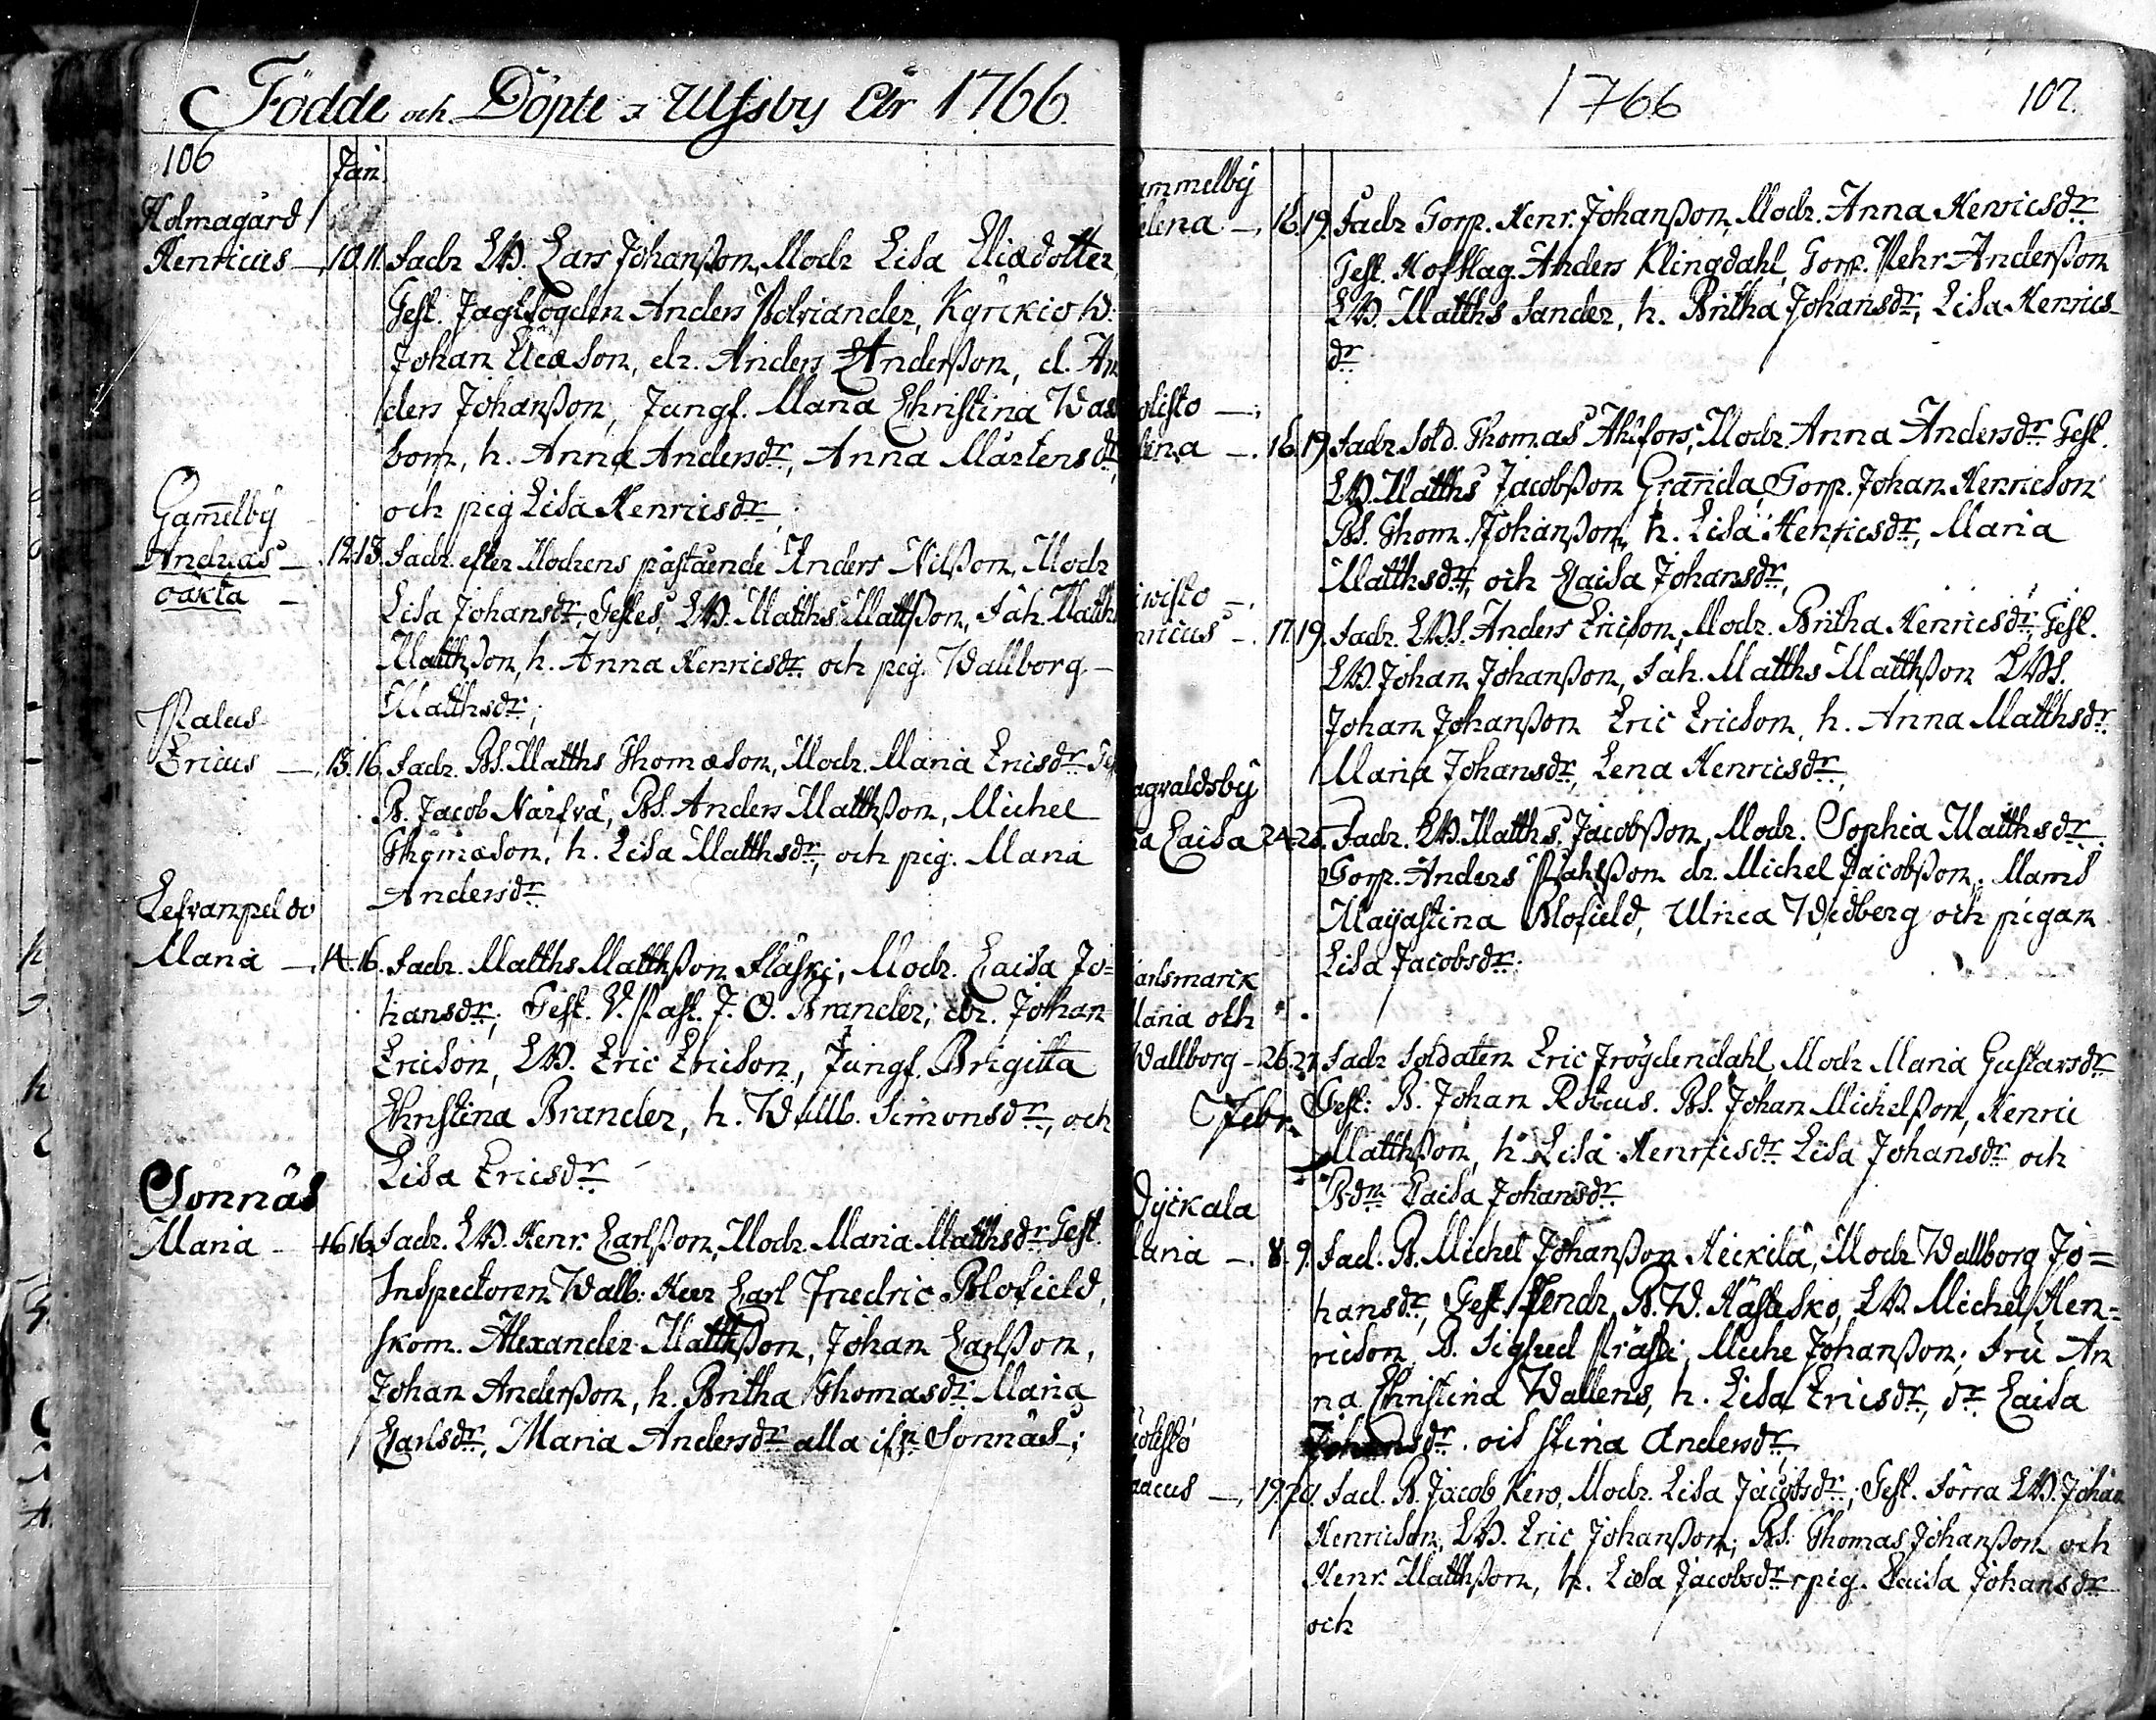 Födde och Döpte i Ulfsby Åhr 1766.
106
Jan.
Holmagård
Henricus — 10. 11. Fadr LB. Lars Johanßon, Modr Lisa Eliædotter
Gest. Jagtfogden Anders Polviander, Kyrckio W.
Johan Eliæson, dr. Anders Anderßon, d. An
ders Johanßon, Jungf. Maria Christina Was
bom, h. Anna Andersdr, Anna Mårtensdr,
och pig Lisa Henricsdr,
Gam̄elby
Andreas — 12. 13. Fadr. efter Modrens påstående Anders Nilßon, Modr
oäkta —
Lisa Johansdr, Testes, LB. Matths Mattßon, Jäh. Matth
Matthßon, h. Anna Henricsdr och pig. Wallborg
Matthsdr;
Palus
Ericus — 13. 16. Fadr. BS. Matths Thomæson, Modr. Maria Ericsdr Ges
B. Jacob Närfvä, BS. Anders Matthßon, Michel
Thomæson, h. Lisa Matthsdr, och pig. Maria
Andersdr
Lefvanpeldo
Maria — 14. 16. Fadr. Matths Matthßon Fläski, Modr. Caisa Jo=
hansdr; Gest. V. Past. J. O. Brander; dr. Johan
Ericson, LB. Eric Ericson, Jungf. Brigitta
Christina Brander, h. Wallb. Simonsdr, och
Lisa Ericsdr
Sonnäs
Maria — 16. 16. Fadr. LB. Henr. Carlßon, Modr. Maria Matthsdr Gest.
Inspectoren Walb: Herr Carl Friedric Blofield,
skom. Alexander Matthßon, Johan Carlßon,
Johan Anderßon, h. Britha Thomasdr Maria
Carlsdr, Maria Andersdr alla ifr. Sonnäs;
1766
107.
ammelby
elena — 16. 19. Fadr Corp. Henr. Johanßon, Modr. Anna Henricsdr
Gest. Hofslag. Anders Klingdahl, Corp. Pehr Anderßon
LB. Matths Sander, h. Britha Johansdr, Lisa Henrics
dr
olisto —
tina — 16. 19 Fadr. Sold. Thomas Ahlfors, Modr. Anna Andersdr Gest.
LB. Matths Jacobßon Gran̄ila, Corp. Johan Henricson
BS. Thom. Johanßon, h. Lisa Henricsdr, Maria
Matthsdr, och Caisa Johansdr,
iwisto —
nricus — 17. 19. Fadr. LBS. Anders Ericson, Modr. Britha Henricsdr, Gest.
LB. Johan Johanßon, Jäh. Matths Matthßon LBS.
Johan Johanßon Eric Ericson, h. Anna Matthsdr
Maria Johansdr, Lena Henricsdr,
agvaldsby
a Caisa 24. 25. Fadr. LB. Matths Jacobßon, Modr. Sophia Matthsdr
Corp. Anders Pahlßon dr. Michel Jacobßon. Mams
Mayastina Blofield, Ulrica Widberg och pigan
Lisa Jacobsdr.
arlsmarck
Maria och
Wallborg — 26. 27. Fadr Soldaten Eric Frögdendahl, Modr Maria Gustavsdr
Gest: B. Johan Rotkus. BS. Johan Michelßon, Henric
Matthßon, h. Lisa Henricsdr Lisa Johansdr och
Bdr. Caisa Johansdr
Febr.
Dyckala
Maria — 8. 9. Fad. B. Michel Johanßon Heickilä, Modr Wallborg Jo=
hansdr, Gest. Fendr. B. W. Hästesko, LB. Michel Hen=
ricson, B. Sigfred Präski, Miche Johanßon; Fru An
na Christina Wallens, h. Lisa Ericsdr, dr. Caisa
Johansdr. och Stina Andersdr,
olisto
aacus — 19. 20. Fad. B. Jacob Kero, Modr. Lisa Jacobsdr; Gest. Förra LB. Johan
Henricson, LB. Eric Johanßon, BS. Thomas Johanßon och
Henr. Matthßon, h. Lisa Jacobsdr pig. Caisa Johansdr
och